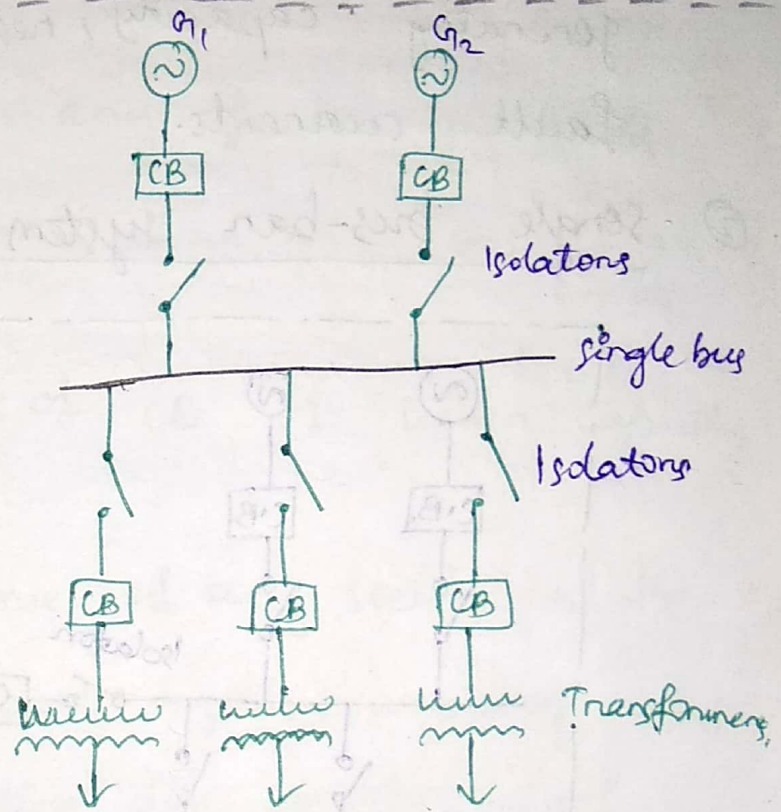 G1 G2
CB CB
Isolators
Single bus
Isolators
CB CB CB
Transformers,